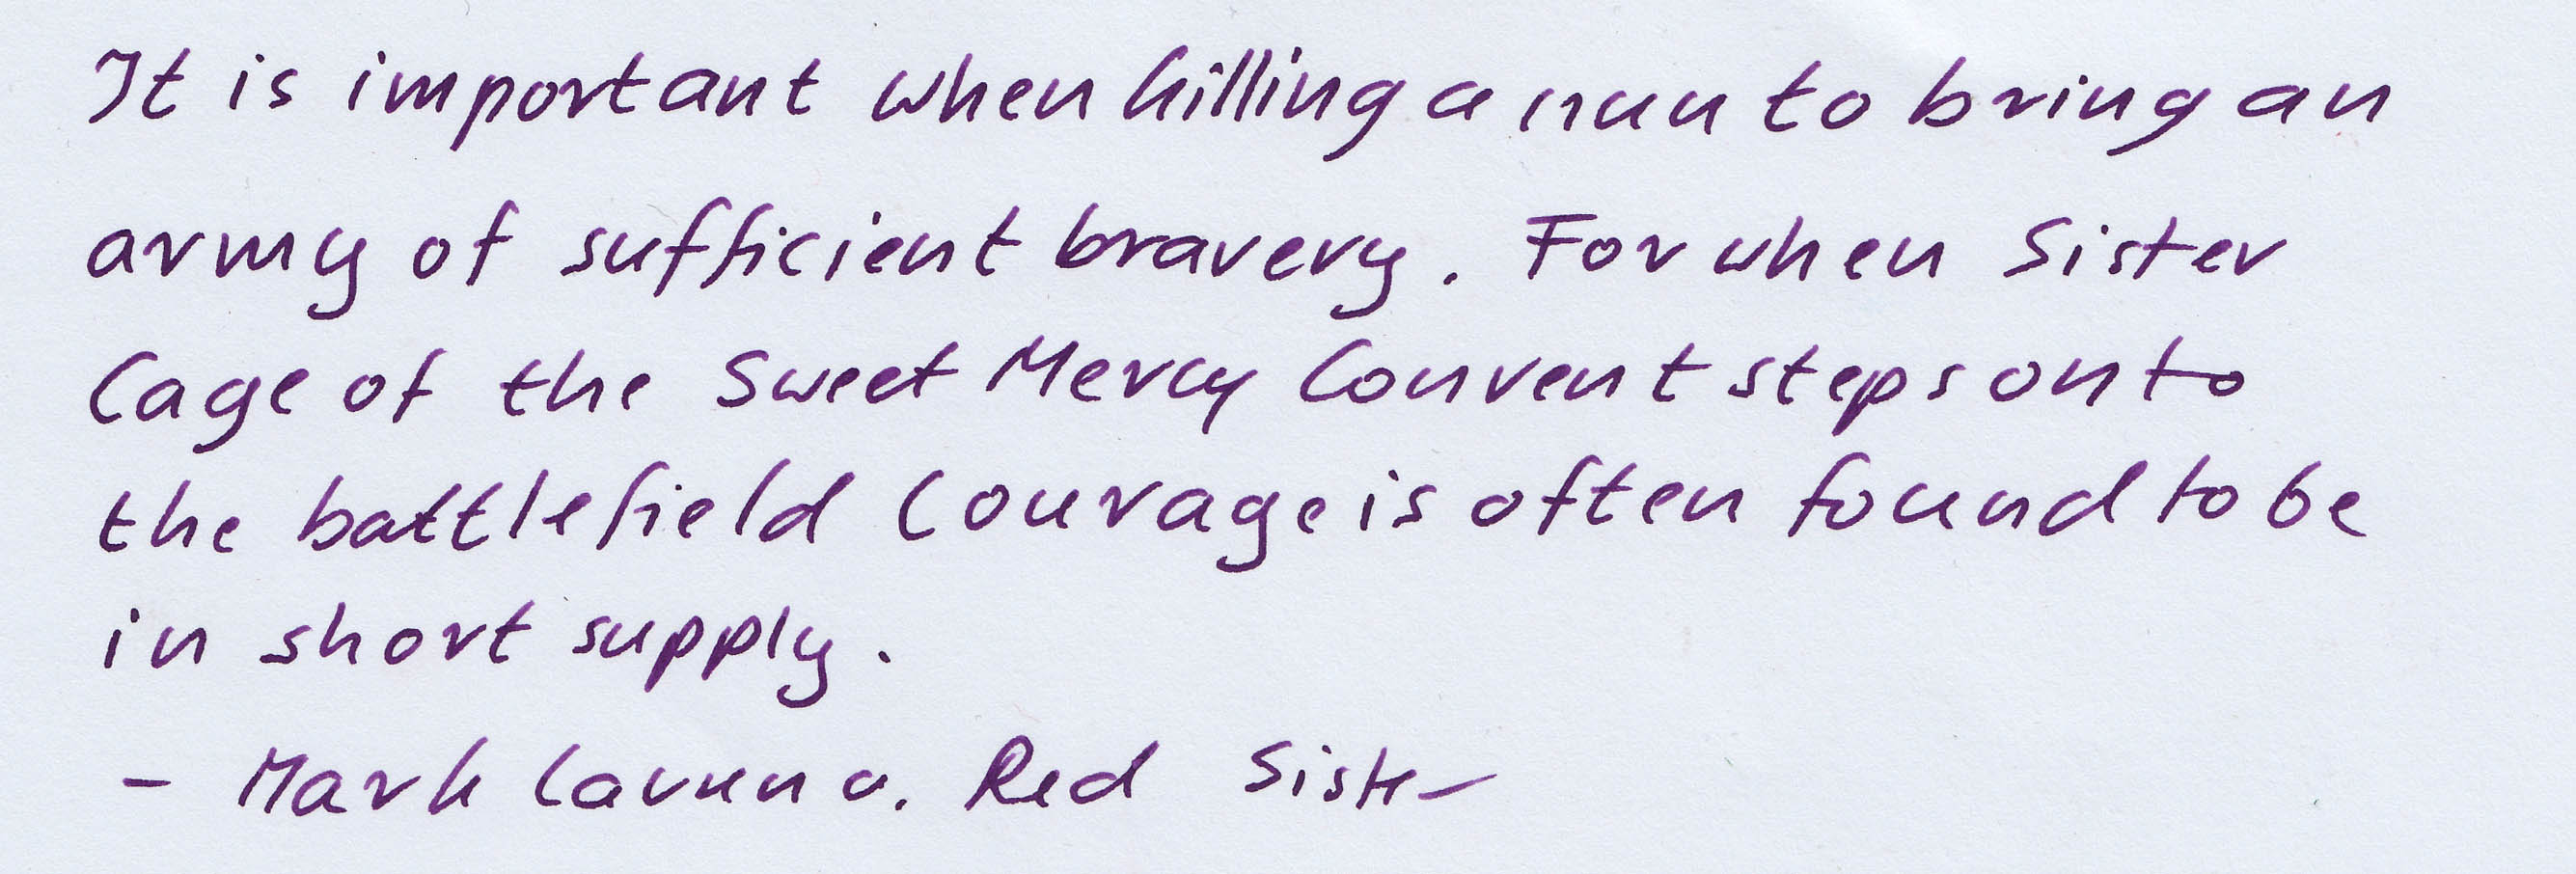 It is important when killing a nun to bring an
army of sufficient bravery. For when Sister
Cage of the Sweet Mercy Convent steps onto
the battlefield Courage is often found to be
in short supply.
- Mark Red Sister